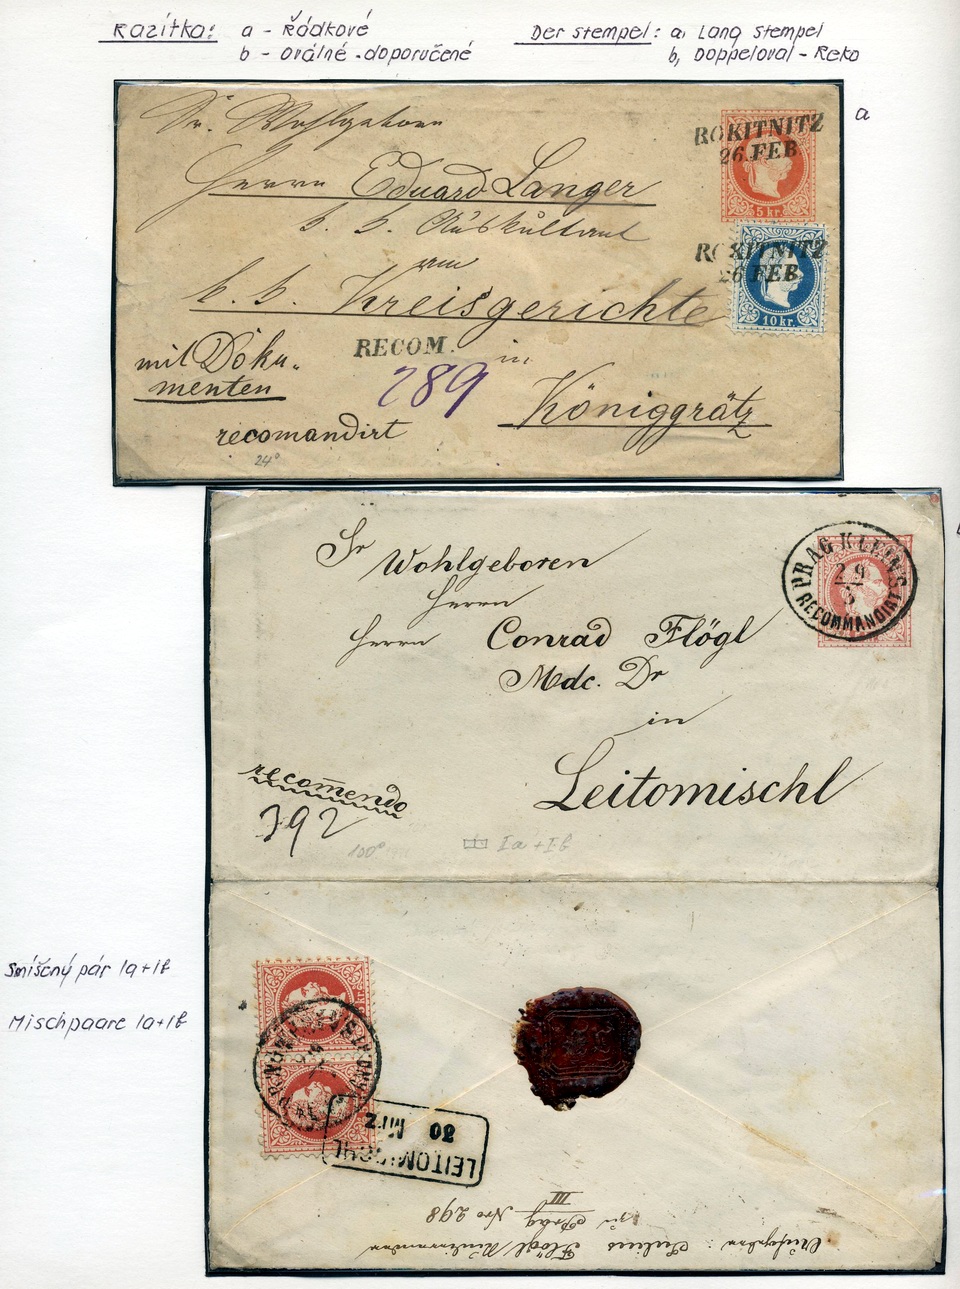 Razítka: a - Řádkové
b - oválné - doporučené
Der stempel: a, Lang stempel
b, Doppeloval - Reko
a
Sr. Wohlgeboren
Herrn Eduard Langer
k. k. Auskultant
am
k. k. Kreisgerichte
in
Königgrätz
mit Doku-
menten
recomandirt
24°
RECOM.
289
ROKITNITZ
26 FEB
5 kr.
ROKITNITZ
26 FEB.
10 kr.
Sr Wohlgeboren
Herrn
Herrn Conrad Flögl
Mdc. Dr
in
Leitomischl
recom̄endo
392
100°
Ia + Ib
PRAG KLEINS
29
3
RECOMMANDIRT
Smíšený pár Ia+Ib
Mischpaare Ia+Ib
kr.
LEITOMISCHL
30 MRZ
Julius Flögl
in Prag Nro 298
III